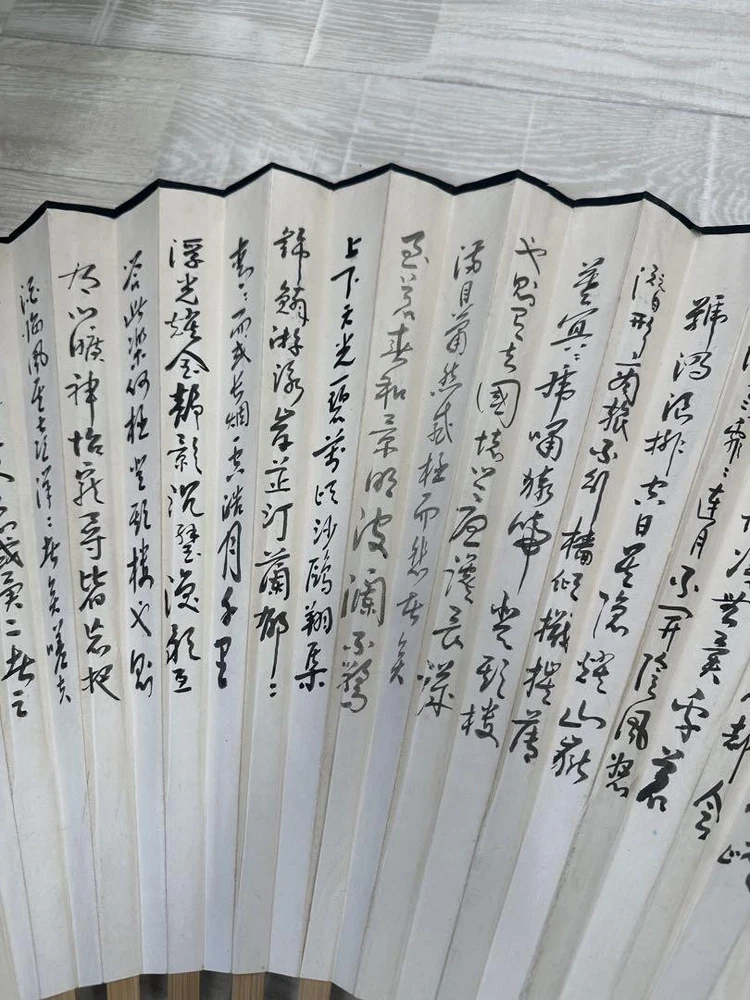 霏〻連月不開陰風怒
號濁浪排空日星隱燿山嶽
潛形商旅不行檣傾檝摧薄
暮冥〻虎嘯猿啼登斯樓
也則有去國懷鄉憂讒畏譏
滿目蕭然感極而悲者矣
至若春和景明波瀾不驚
上下天光一碧萬頃沙鷗翔集
錦鱗游泳岸芷汀蘭郁〻
青〻而或長烟一空皓月千里
浮光燿金靜影沉璧漁歌互
答此樂何極登斯樓也則
有心曠神怡寵辱皆忘把
酒臨風其喜洋〻者矣嗟夫
心或異二者之